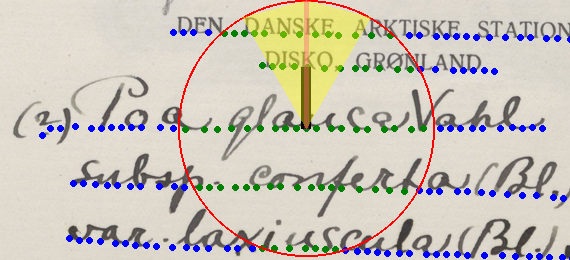 DEN DANSKE ARKTISKE STATION
DISKO, GRØNLAND
(2) Poa glauca Vahl
subsp. conferta (Bl.)
var. laxiuscula (Bl.)